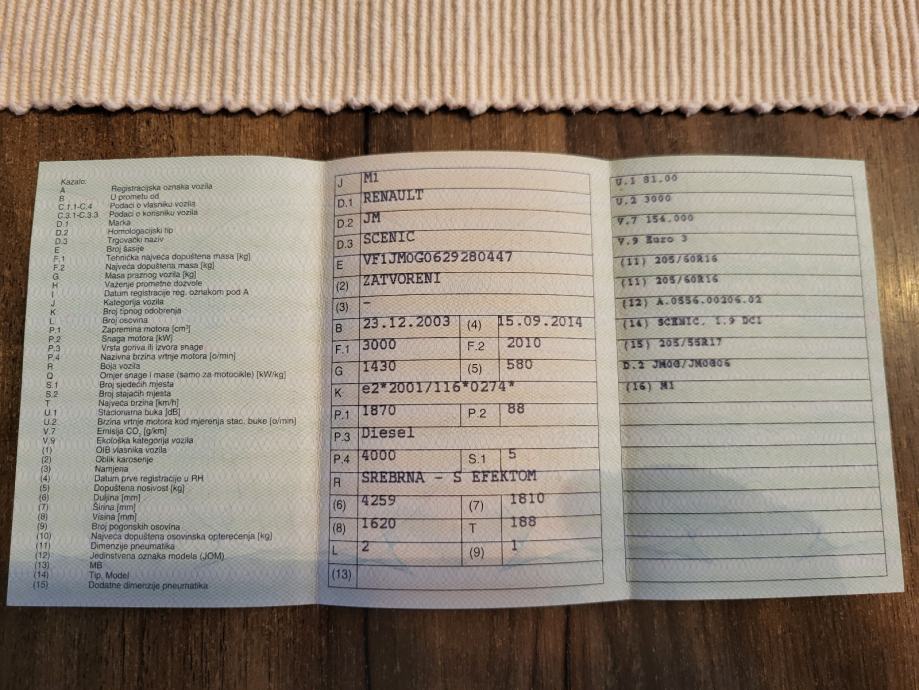 Kazalo:
A Registracijska oznaka vozila
B U prometu od
C.1.1-C.4 Podaci o vlasniku vozila
C.3.1-C.3.3 Podaci o korisniku vozila
D.1 Marka
D.2 Homologacijski tip
D.3 Trgovački naziv
E Broj šasije
F.1 Tehnička najveća dopuštena masa [kg]
F.2 Najveća dopuštena masa [kg]
G Masa praznog vozila [kg]
H Važenje prometne dozvole
I Datum registracije reg. oznakom pod A
J Kategorija vozila
K Broj tipnog odobrenja
L Broj osovina
P.1 Zapremina motora [cm³]
P.2 Snaga motora [kW]
P.3 Vrsta goriva ili izvora snage
P.4 Nazivna brzina vrtnje motora [o/min]
R Boja vozila
Q Omjer snage i mase (samo za motocikle) [kW/kg]
S.1 Broj sjedećih mjesta
S.2 Broj stajaćih mjesta
T Najveća brzina [km/h]
U.1 Stacionarna buka [dB]
U.2 Brzina vrtnje motora kod mjerenja stac. buke [o/min]
V.7 Emisija CO₂ [g/km]
V.9 Ekološka kategorija vozila
(1) OIB vlasnika vozila
(2) Oblik karoserije
(3) Namjena
(4) Datum prve registracije u RH
(5) Dopuštena nosivost [kg]
(6) Duljina [mm]
(7) Širina [mm]
(8) Visina [mm]
(9) Broj pogonskih osovina
(10) Najveća dopuštena osovinska opterećenja [kg]
(11) Dimenzije pneumatika
(12) Jedinstvena oznaka modela (JOM)
(13) MB
(14) Tip, Model
(15) Dodatne dimenzije pneumatika
J M1
D.1 RENAULT
D.2 JM
D.3 SCENIC
E VF1JM0G0629280447
(2) ZATVORENI
(3) -
B 23.12.2003 (4) 15.09.2014
F.1 3000 F.2 2010
G 1430 (5) 580
K e2*2001/116*0274*
P.1 1870 P.2 88
P.3 Diesel
P.4 4000 S.1 5
R SREBRNA - S EFEKTOM
(6) 4259 (7) 1810
(8) 1620 T 188
L 2 (9) 1
(13)
U.1 81.00
U.2 3000
V.7 154.000
V.9 Euro 3
(11) 205/60R16
(11) 205/60R16
(12) A.0556.00206.02
(14) SCENIC, 1.9 DCI
(15) 205/55R17
D.2 JM0G/JM0G06
(16) M1